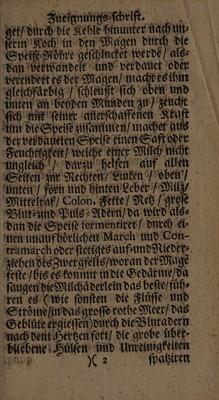 Zueignungs-schrift.
get/ durch die Kehle hinunter nach un-
serm Koch in den Magen durch die
Speise-Röhre geschincket werde/ als-
dan verwandelt und verdauet oder
verendert es der Magen/ macht es ihm
gleichfärbig/ schleust sich oben und
unten an beyden Munden zu/ zeucht
sich mit seiner anerschaffenen Krafft
um die Speise zusammen/ machet aus
der verdauten Speise einen Safft oder
Feuchtigkeit/ welche einer Milch nicht
ungleich/ darzu helfen auf allen
Seiten zur Rechten/ Lincken/ oben/
unten/ forn und hinten Leber/ Miltz/
Mittelraf/ Colon, Fette/ Netz/ grose
Blut- und Puls-Adern/ da wird als-
dan die Speise fermentiret/ durch ei-
nen unaufhörlichen March und Con-
tramarch oder stetiges auf-und Nieder-
ziehen des Zwergfells/ woran der Mage
feste/ bis es kommt in die Gedärme/ da
saugen die Milchäderlein das beste/ füh-
ren es (wie sonsten die Flüsse und
Ströme/ in das grosse rothe Meer/ das
Geblüte ergiessen) durch die Blutadern
nach dem Hertzen fort/ die grobe über-
bliebene Hülsen und Unreinigkeiten
)( 2 spatziren